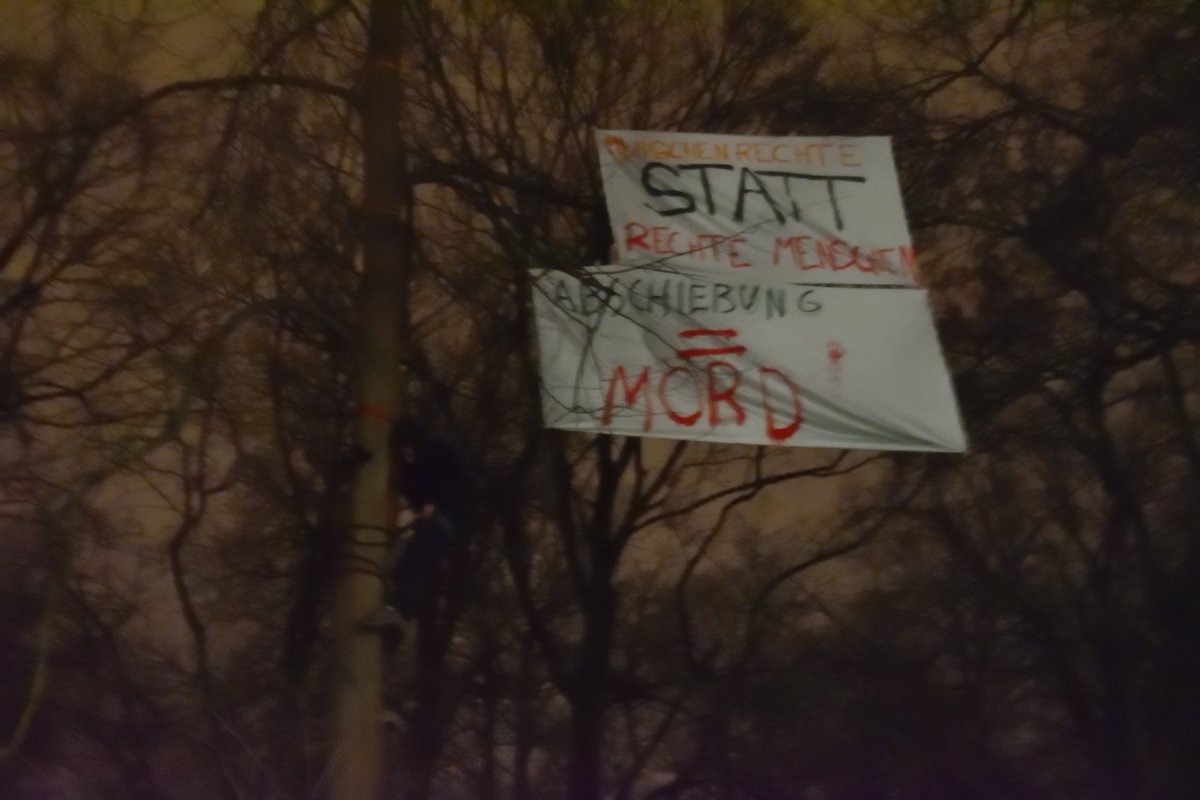 MENSCHENRECHTE
STATT
RECHTE MENSCHEN
ABSCHIEBUNG
=
MORD